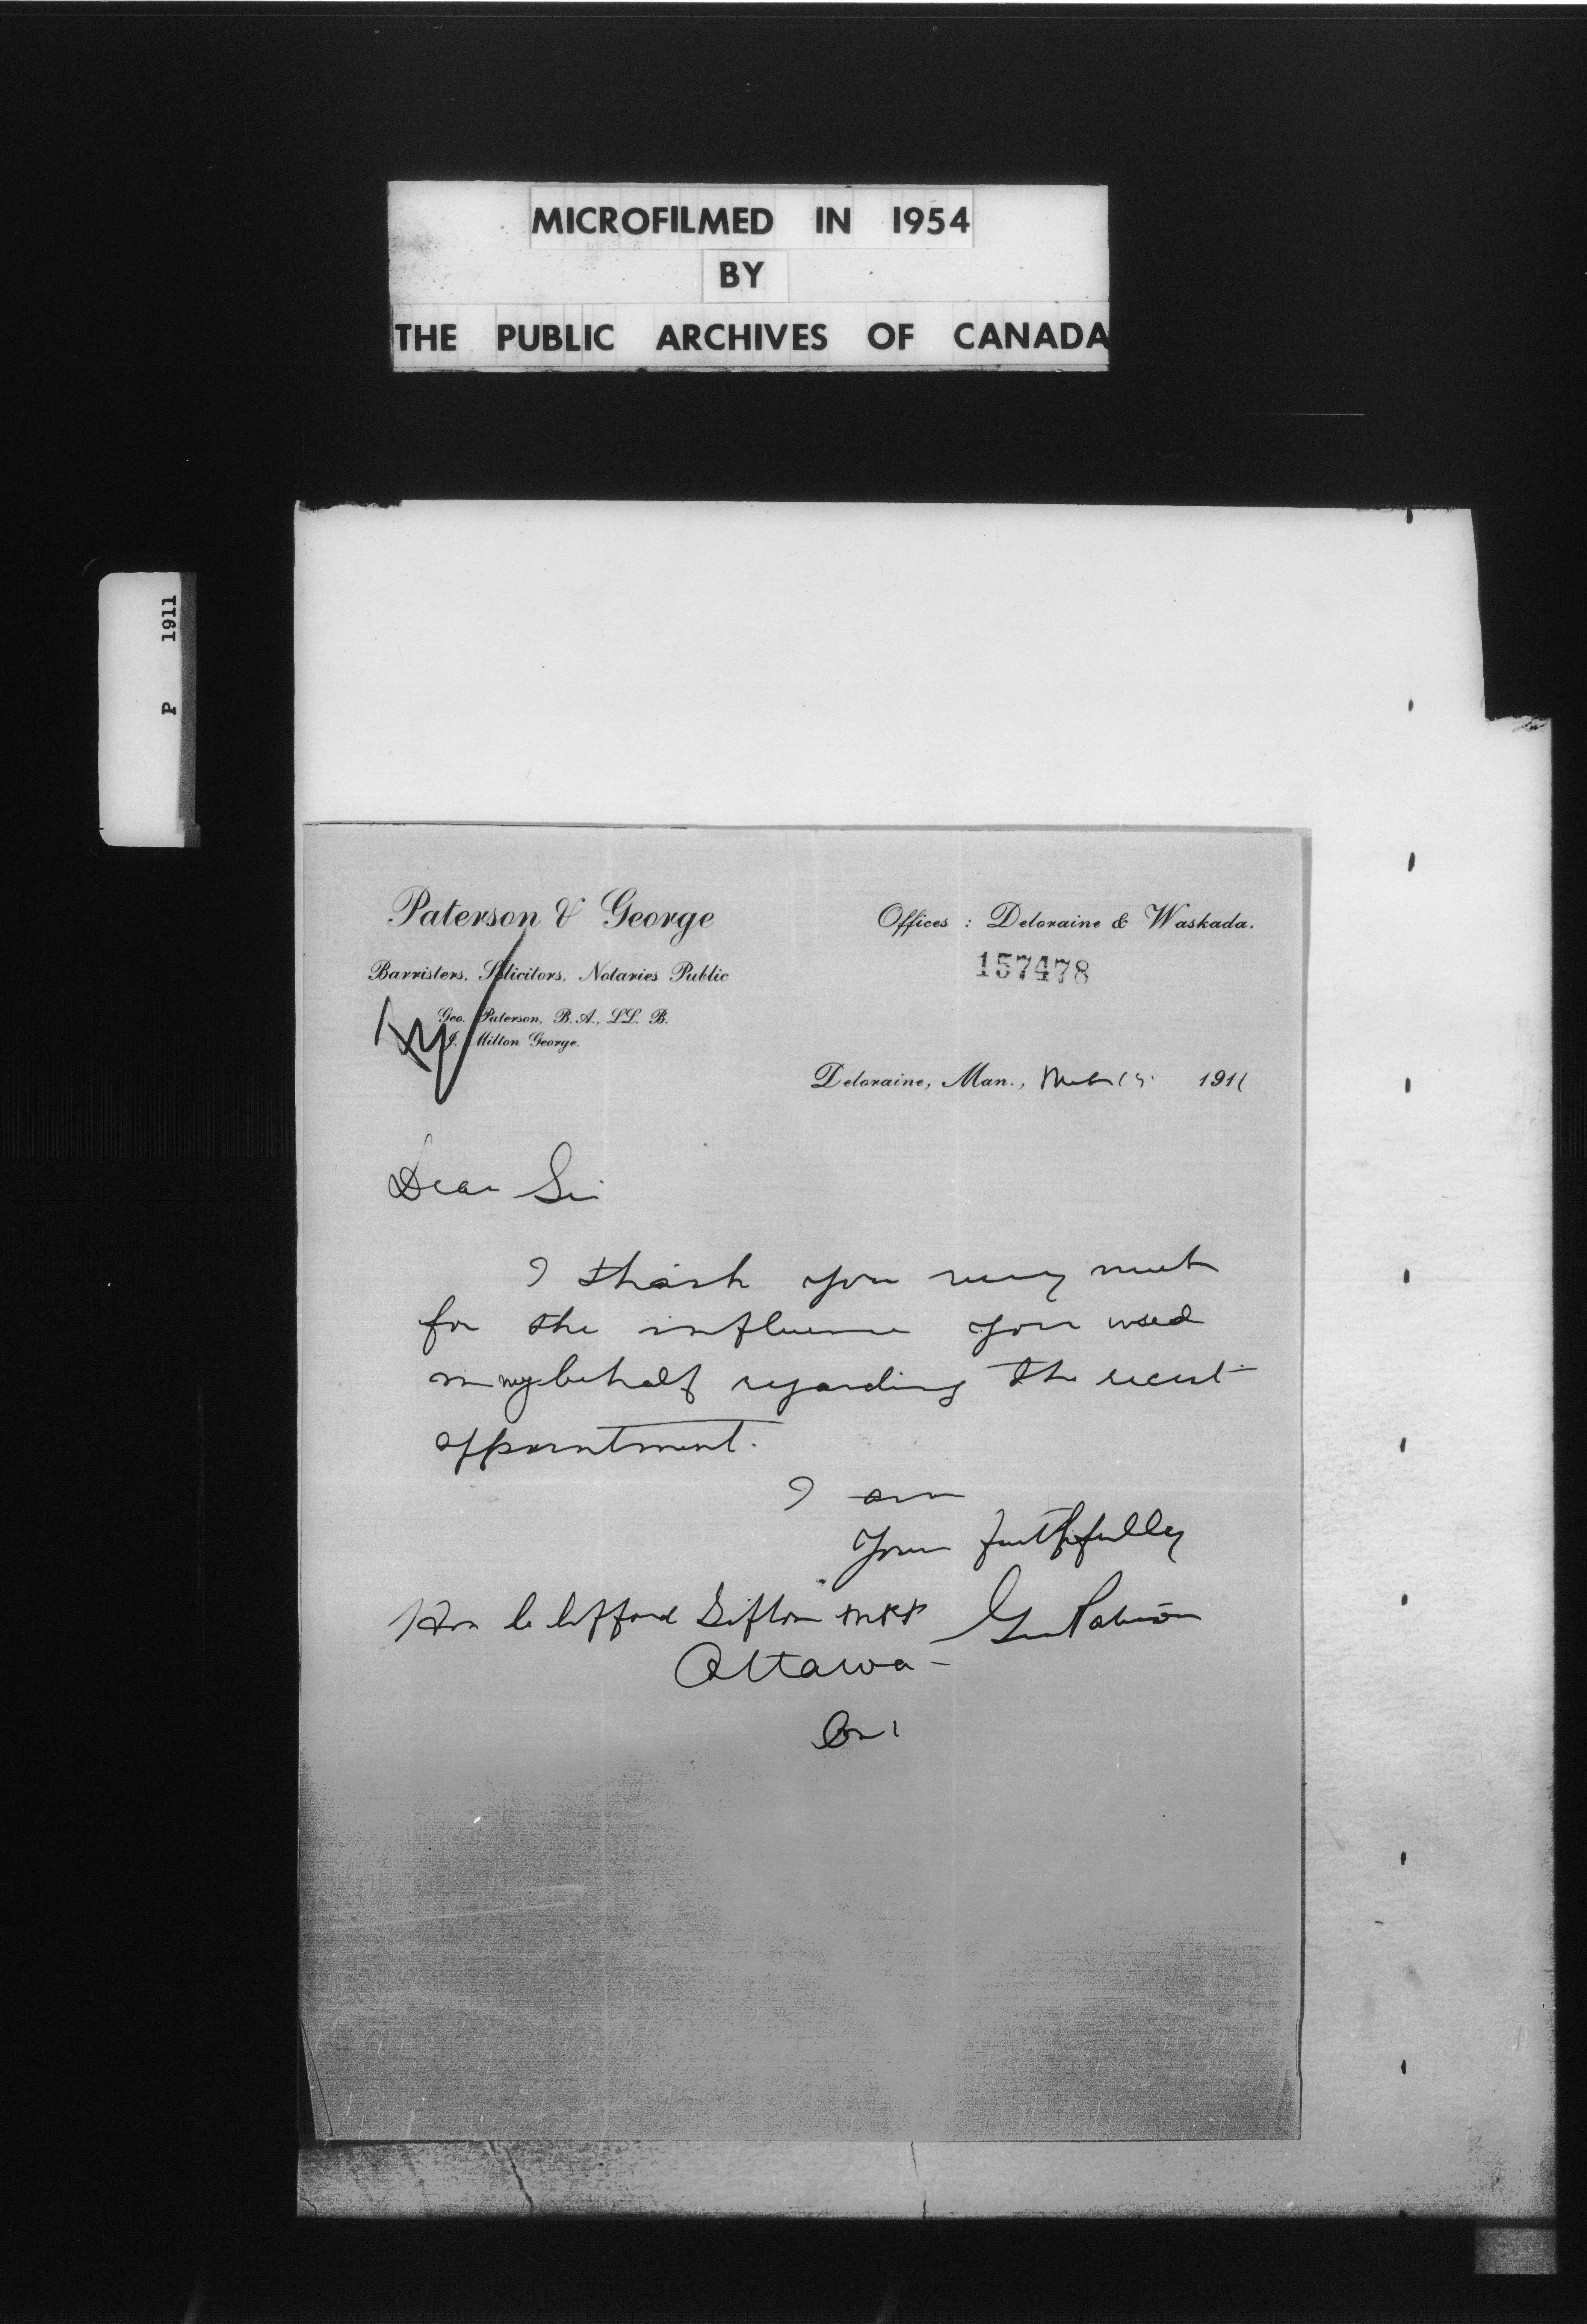 MICROFILMED IN 1954
BY
THE PUBLIC ARCHIVES OF CANADA
P 1911
Paterson & George
Offices : Deloraine & Waskada.
Barristers, Solicitors, Notaries Public
157478
Geo. Paterson, B.A., LL. B.
J. Milton George.
Deloraine, Man., 1911
Dear Sir
I thank you very much
for the influence you used
in my behalf regarding the recent
appointment.
I am
Yours faithfully
Geo Paterson
Hon Clifford Sifton
Ottawa -
Ont